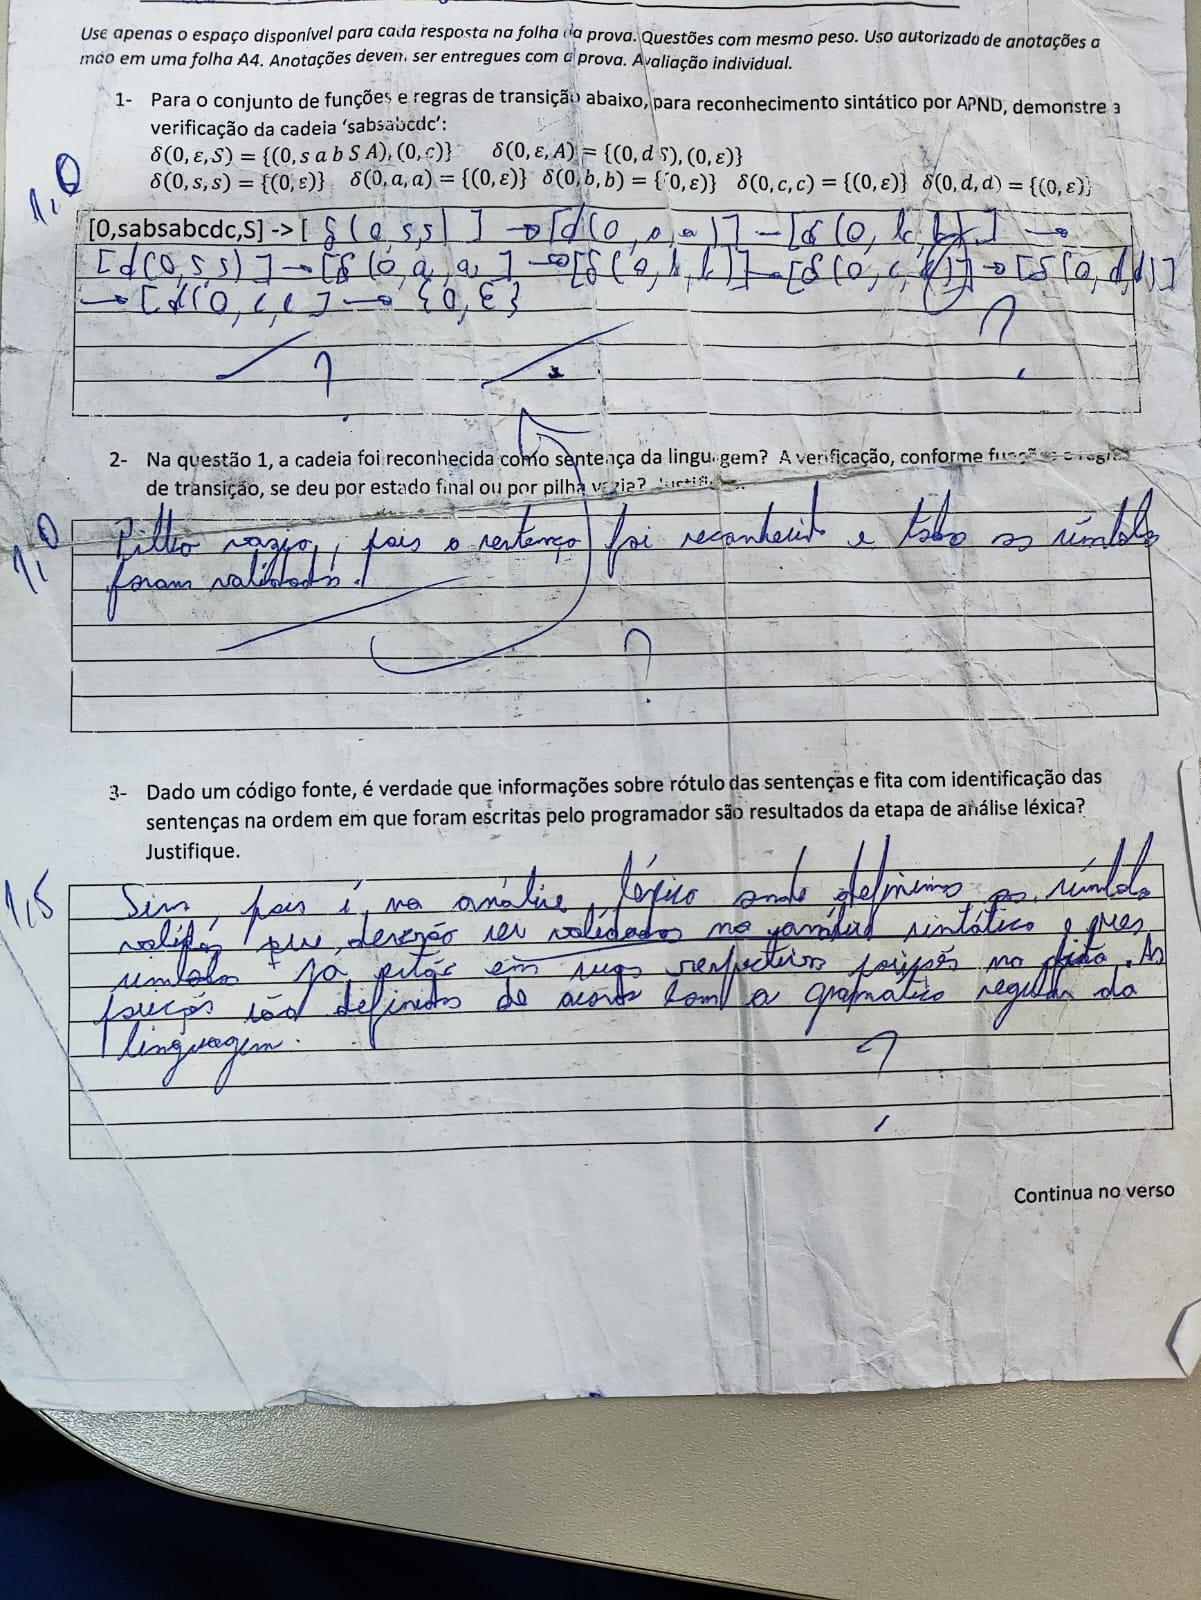 Use apenas o espaço disponível para cada resposta na folha da prova. Questões com mesmo peso. Uso autorizado de anotações a
mão em uma folha A4. Anotações devem ser entregues com a prova. Avaliação individual.
1- Para o conjunto de funções e regras de transição abaixo, para reconhecimento sintático por APND, demonstre a
verificação da cadeia 'sabsabcdc':
δ(0, ε, S) = {(0, s a b S A), (0, c)} δ(0, ε, A) = {(0, d S), (0, ε)}
1,0
δ(0, s, s) = {(0, ε)} δ(0, a, a) = {(0, ε)} δ(0, b, b) = {(0, ε)} δ(0, c, c) = {(0, ε)} δ(0, d, d) = {(0, ε)}
[0,sabsabcdc,S] -> [ δ(0,s,s) ] → [δ(0,a,a)] → [δ(0,b,b)] →
[δ(0,s,s)] → [δ(0,a,a] → [δ(0,b,b)] → [δ(0,c,c)] → [δ(0,d,d)]
→ [δ(0,c,c] → {0,ε}
?
?
2- Na questão 1, a cadeia foi reconhecida como sentença da linguagem? A verificação, conforme funções e regras
de transição, se deu por estado final ou por pilha vazia?
1,0
Pilha vazia, pois a sentença foi reconhecida e todos os símbolos
foram validados.
?
3- Dado um código fonte, é verdade que informações sobre rótulo das sentenças e fita com identificação das
sentenças na ordem em que foram escritas pelo programador são resultados da etapa de análise léxica?
Justifique.
1,5
Sim, pois é na análise léxica onde definimos os símbolos
validos que deverão ser validados na sintático e
símbolos já em suas respectivas posições na fita. As
posições são definidas de acordo com a gramática regular da
linguagem.
?
Continua no verso